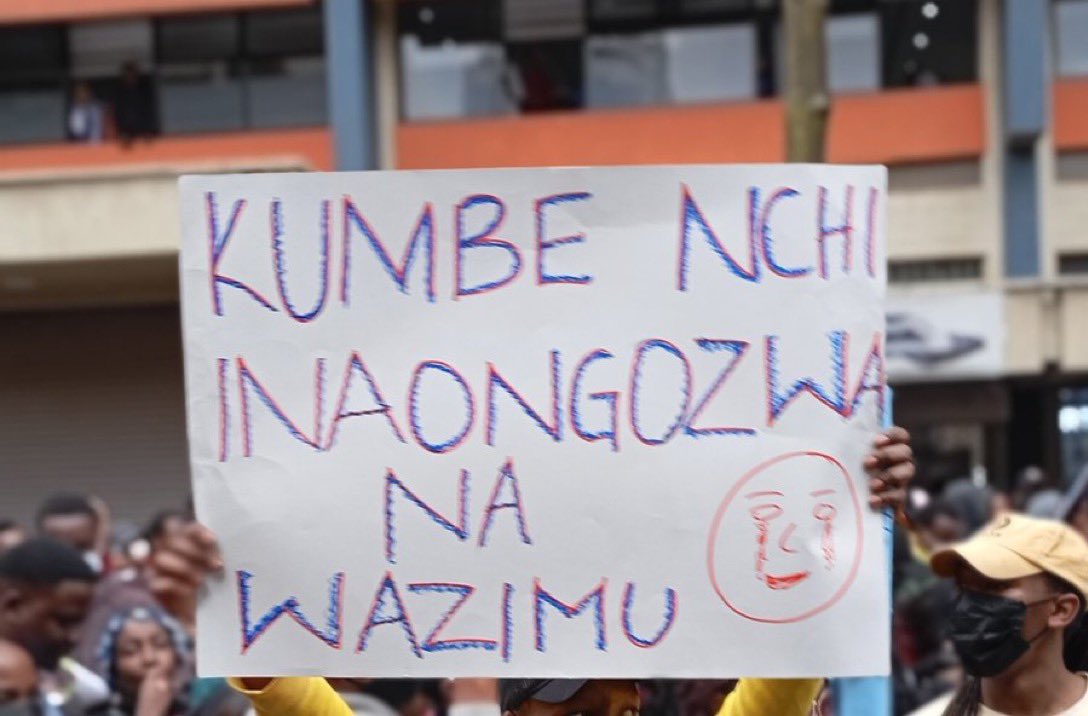 KUMBE NCHI
INAONGOZWA
NA
WAZIMU